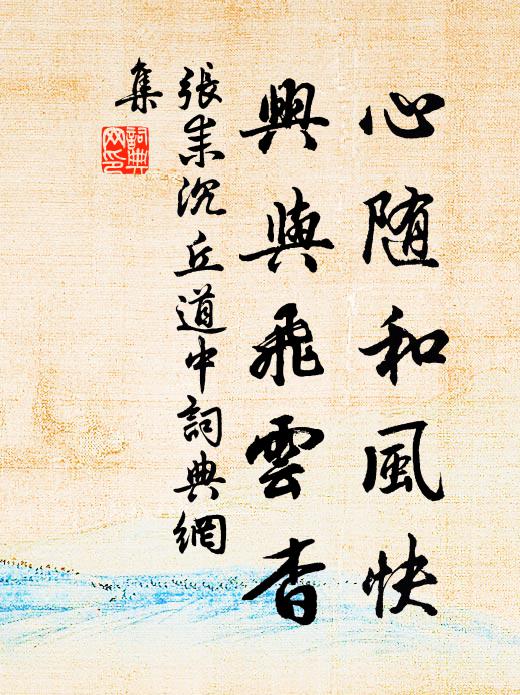 心随和風快
興與飛雲杳
張耒沉丘道中詞典網
集
詞典
网印